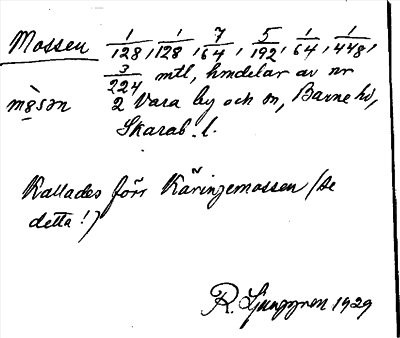 Mossen 1/128, 1/128, 7/64, 5/192, 1/64, 1/448,
3/224 mtl, hmdelar av nr
mɵ̀sən 2 Vara by och sn, Barne hd,
Skarab. l.
Kallades förr Käringemossen (se
detta!)
R. Ljunggren 1929